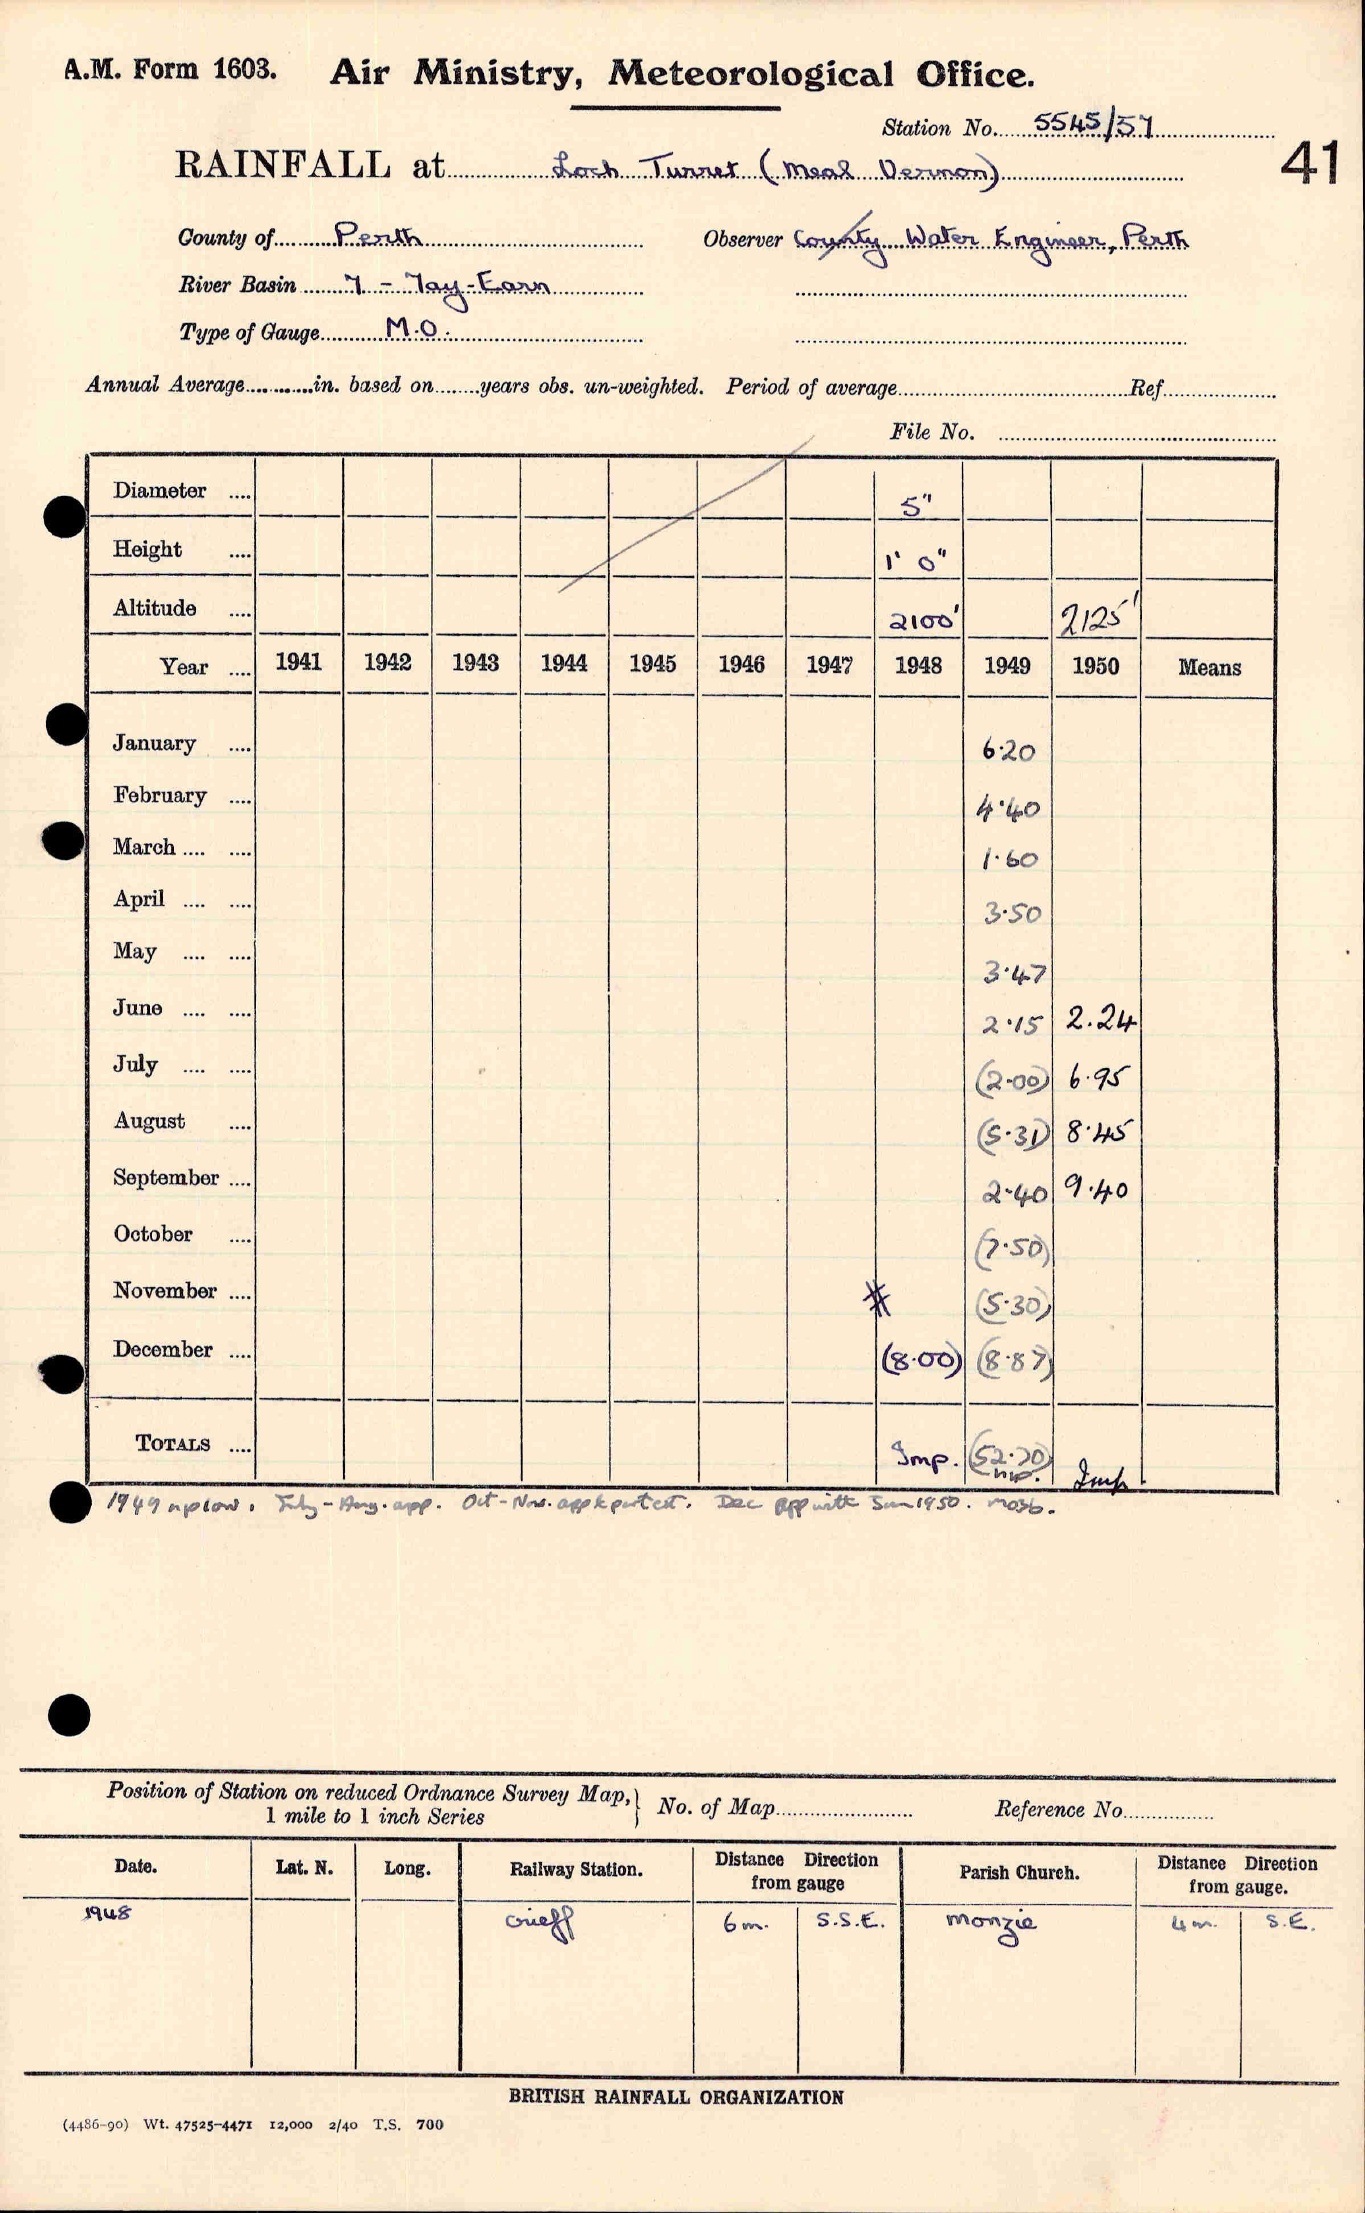 A.M. Form 1603. Air Ministry, Meteorological Office.
Station No. 5545/57
41
RAINFALL at Loch Turret (Meal Dermon)
County of Perth Observer County Water Engineer, Perth
River Basin 7 - Tay-Earn
Type of Gauge M.O.
Annual Average in. based on years obs. un-weighted. Period of average Ref
File No.
Diameter 5"
Height 1' 0"
Altitude 2100' 2125'
Year 1941 1942 1943 1944 1945 1946 1947 1948 1949 1950 Means
January 6.20
February 4.40
March 1.60
April 3.50
May 3.47
June 2.15 2.24
July (2.00) 6.95
August (5.31) 8.45
September 2.40 9.40
October (7.50)
November # (5.30)
December (8.00) (8.87)
TOTALS Imp. (52.70) Imp.
n.p.
1949 n.p. low. July-Aug. app. Oct-Nov. app & part est. Dec app with Jan 1950. MO3b.
Position of Station on reduced Ordnance Survey Map,
1 mile to 1 inch Series } No. of Map Reference No.
Date. Lat. N. Long. Railway Station. Distance Direction from gauge Parish Church. Distance Direction from gauge.
1948 Crieff 6m. S.S.E. Monzie 4m. S.E.
BRITISH RAINFALL ORGANIZATION
(4486-90) Wt. 47525-4471 12,000 2/40 T.S. 700